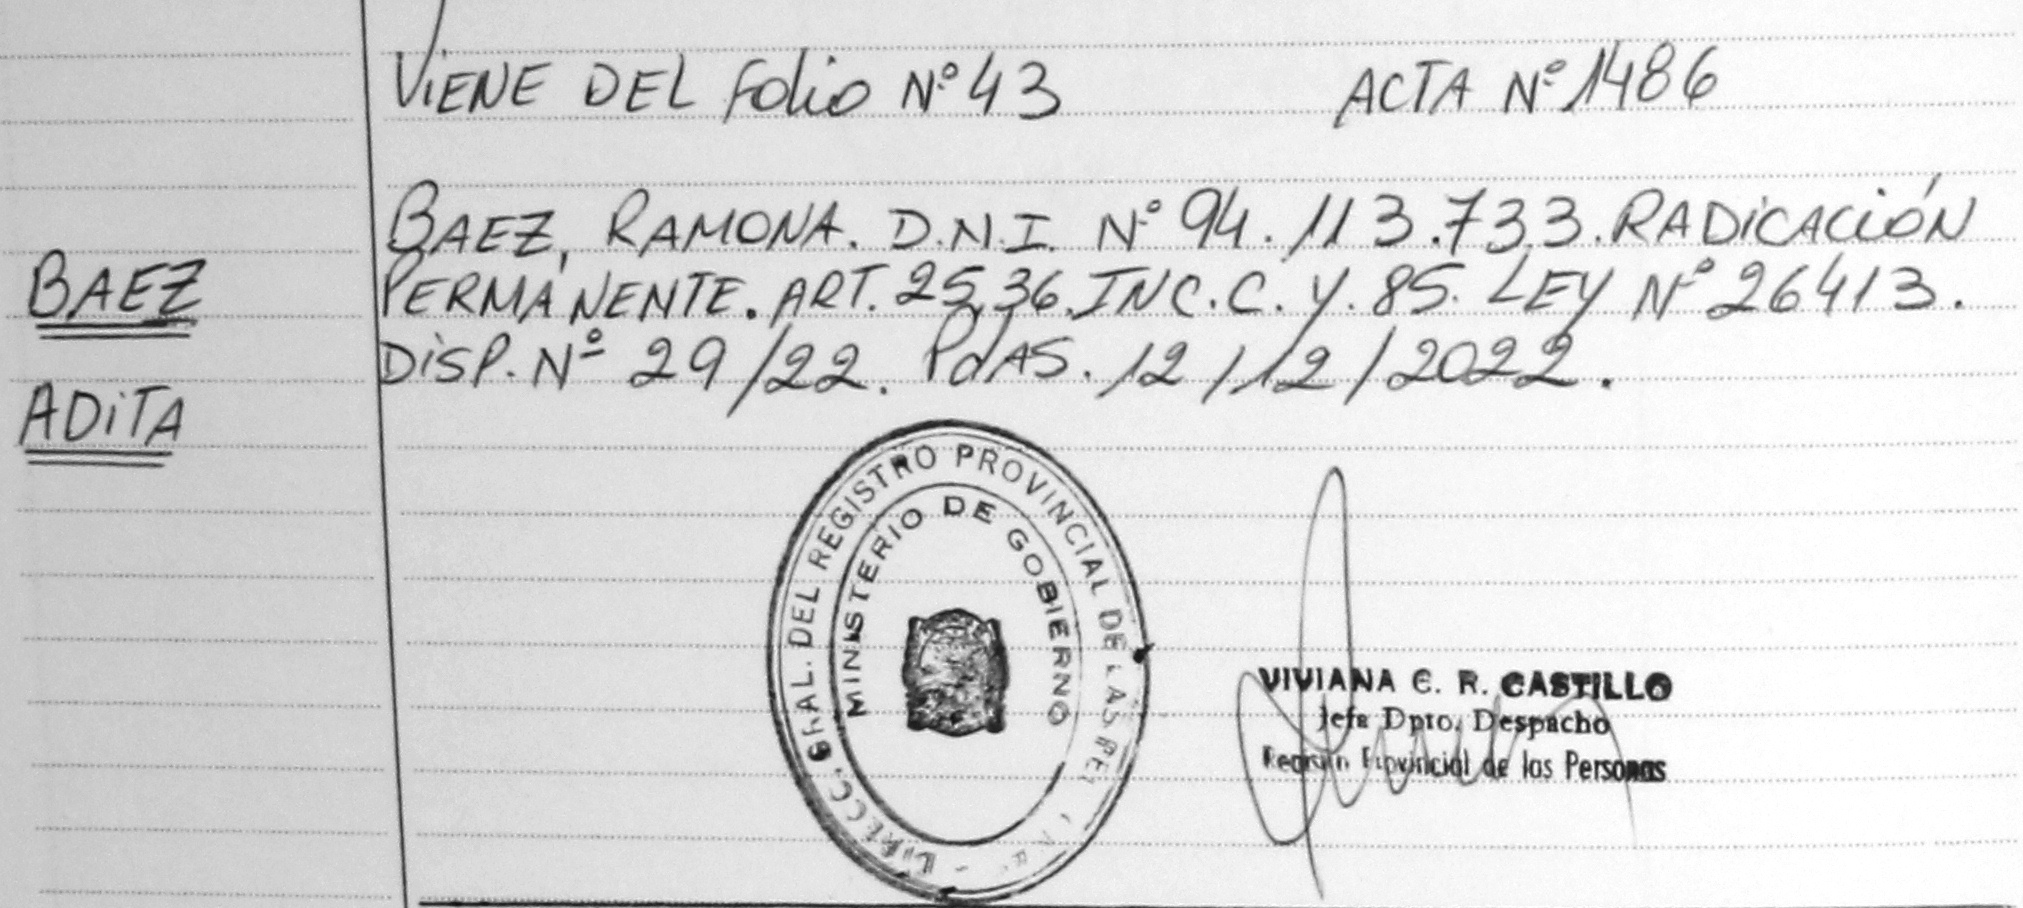 VIENE DEL Folio Nº 43 ACTA Nº 1486
BAEZ, RAMONA. D.N.I. Nº 94.113.733. RADICACIÓN
PERMANENTE. ART. 25,36. INC. C. Y. 85. LEY Nº 26413.
DISP. Nº 29/22. PdAS. 12/12/2022.
BAEZ
ADITA
GRAL. DEL REGISTRO PROVINCIAL DE LAS
MINISTERIO DE GOBIERNO
VIVIANA C. R. CASTILLO
Jefa Dpto. Despacho
Provincial de las Personas